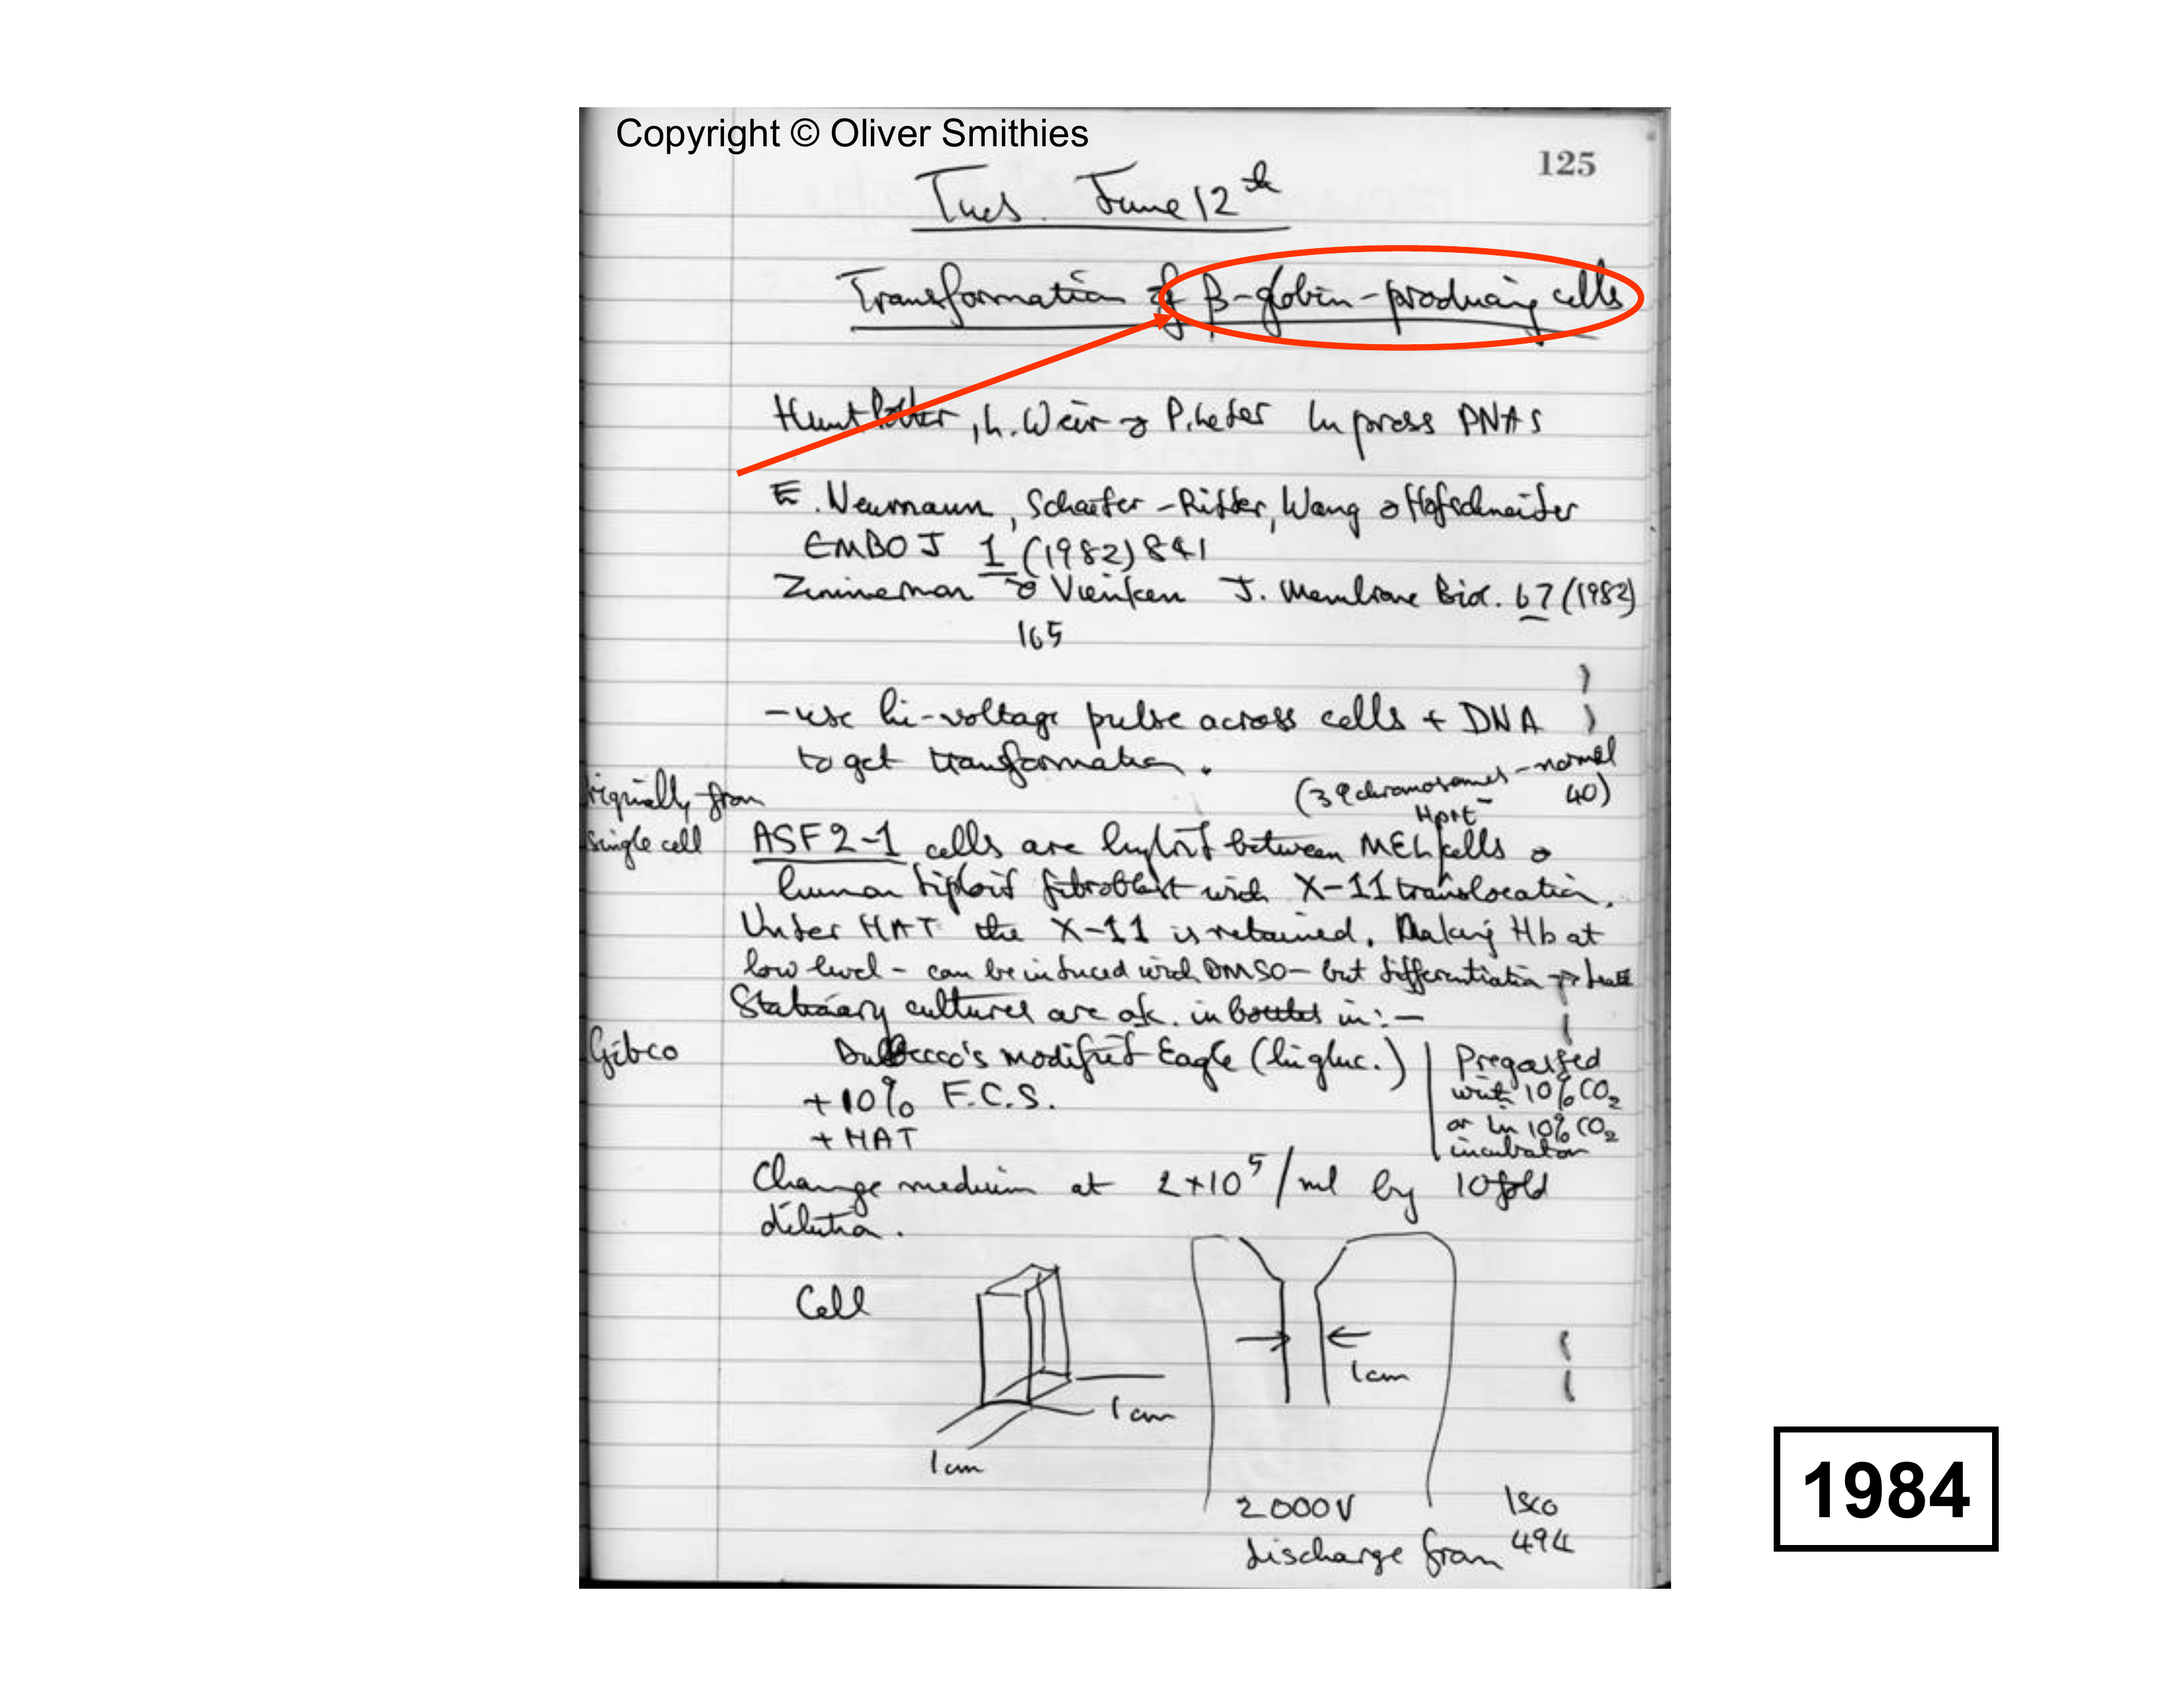 Copyright © Oliver Smithies
125
Tues. June 12th
Transformation of β-globin-producing cells
Hunt Potter, L. Weir & P. Leder In press PNAS
E. Neumann, Schaefer-Ridder, Wang & Hofschneider
EMBO J 1 (1982) 841
Zimmerman & Vienken J. Membrane Biol. 67 (1982)
165
- use hi-voltage pulse across cells + DNA
to get transformation.
(39 chromosomes - normal 40)
Hprt-
originally from
single cell
ASF2-1 cells are hybrid between MEL cells &
human diploid fibroblast with X-11 translocation.
Under HAT the X-11 is retained. Making Hb at
low level - can be induced with DMSO - but differentiation →
Stationary cultures are ok. in bottles in:-
Gibco
Dulbecco's modified Eagle (hi gluc.)
+10% F.C.S.
+ HAT
Pregassed
with 10% CO2
or in 10% CO2
incubator
Change medium at 2×10^5/ml by 10 fold
dilution.
Cell
1 cm
1 cm
1 cm
2000V
discharge from
Isco
494
1984